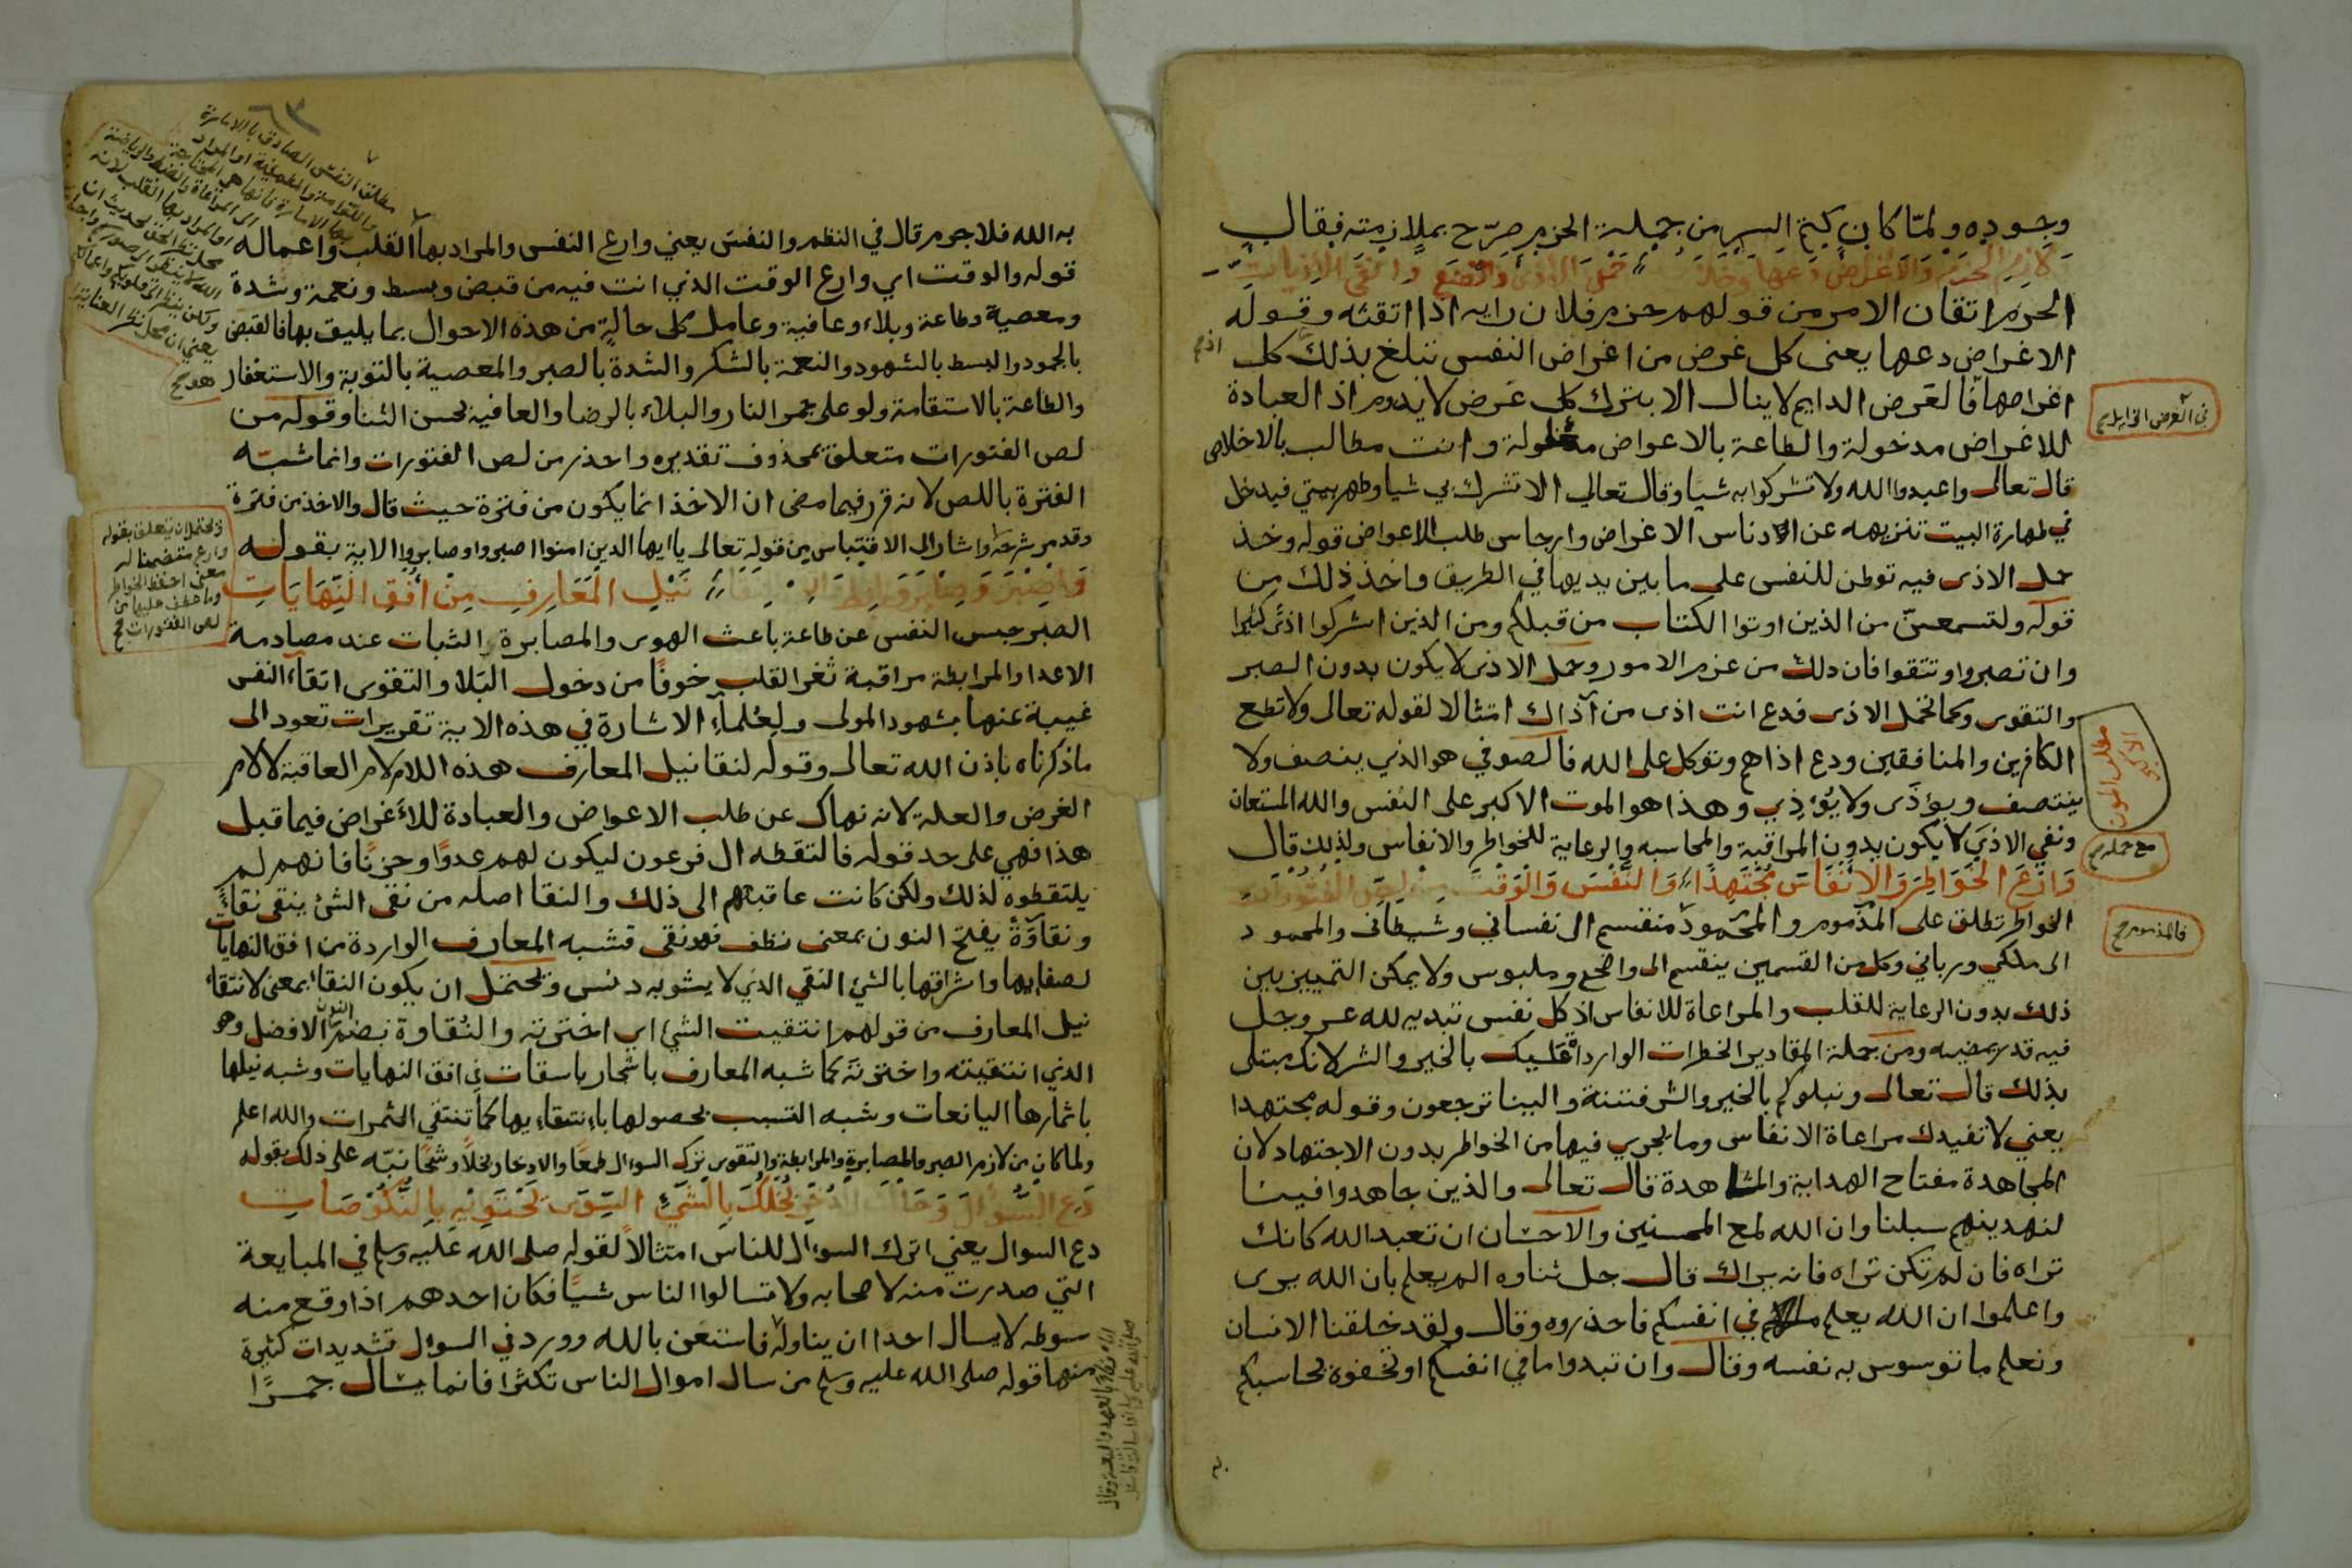 وجوده ولما كان كتم السر من جملة الحزم صرح بملازمته فقال
لازم الحزم والاغراض دعها وخذ حمل الاذى وانفي الاذيات
الحزم اتقان الامر من قولهم حزم فلان رايه اذا اتقنه وقوله
الاغراض دعها يعنى كل غرض من اغراض النفس تبلغ بذلك كل
اغراضها فالعرض الدايم لا ينال الا بترك كل عرض لا يدوم اذ العبادة
للاغراض مدخولة والطاعة بالاعواض معلولة وانت مطالب بالاخلاص
قال تعالى واعبدوا الله ولا تشركوا به شيا وقال تعالى الا تشرك بي شيا وطهر بيتي فيدخل
في طهارة البيت تنزيهه عن ادناس الاغراض وارجاس طلب الاعواض قوله وخذ
حمل الاذى فيه توطن للنفس على ما بين يديها في الطريق واخذ ذلك من
قوله ولتسمعن من الذين اوتوا الكتاب من قبلكم ومن الذين اشركوا اذى كثيرا
وان تصبروا وتتقوا فان ذلك من عزم الامور وحمل الاذى لا يكون بدون الصبر
والتقوى وكما تحمل الاذى فدع انت اذى من آذاك امتثالا لقوله تعالى ولا تطع
الكافرين والمنافقين ودع اذاهم وتوكل على الله فالصوفي هو الذي ينصف ولا
ينتصف ويؤذَى ولا يُؤذِي وهذا هو الموت الاكبر على النفس والله المستعان
ونفي الاذى لا يكون بدون المراقبة والمحاسبه والرعاية للخواطر والانفاس ولذلك قال
وَارْعَ الْخَوَاطِرَ وَالْأَنْفَاسَ مُجْتَهِدًا وَالنَّفْسَ وَالْوَقْتَ مِنْ لِصِّ الْفُتُورَاتِ
الخواطر تطلق على المذموم والمحمود منقسم الى نفساني وشيطاني والمحمود
الى ملكي ورباني وكل من القسمين ينقسم الى واضح وملبوس ولا يمكن التمييز بين
ذلك بدون الرعاية للقلب والمراعاة للانفاس اذ كل نفس تبديه لله عز وجل
فيه قدر يمضيه ومن جملة المقادير الخطرات الواردة عليك بالخير والشر لانك مبتلى
بذلك قال تعالى ونبلوكم بالخير والشر فتنة والينا ترجعون وقوله مجتهدا
يعني لا تفيدك مراعاة الانفاس وما يجري فيها من الخواطر بدون الاجتهاد لان
المجاهدة مفتاح الهداية والمشاهدة قال تعالى والذين جاهدوا فينا
لنهدينهم سبلنا وان الله لمع المحسنين والاحسان ان تعبد الله كانك
تراه فان لم تكن تراه فانه يراك قال جل ثناوه الم يعلم بان الله يرى
واعلموا ان الله يعلم ما في انفسكم فاحذروه وقال ولقد خلقنا الانسان
ونعلم ما توسوس به نفسه وقال وان تبدوا ما في انفسكم او تخفوه يحاسبكم
مطلب الموت الاكبر
فالمذموم صح
٦٣
به الله فلا جرم قال في النظم والنفس يعني وارع النفس والمراد بها القلب واعماله
قوله والوقت اي وارع الوقت الذي انت فيه من قبض وبسط ونعمة وشدة
ومعصية وطاعة وبلاء وعافية وعامل كل حالة من هذه الاحوال بما يليق بها فالقبض
بالجمود والبسط بالشهود والنعمة بالشكر والشدة بالصبر والمعصية بالتوبة والاستغفار
والطاعة بالاستقامة ولو على جمر النار والبلاء بالرضا والعافية بحسن الثنا وقوله من
لص الفتورات متعلق بمحذوف تقديره واحذر من لص الفتورات وانما شبه
الفترة باللص لانه قرر فيما مضى ان الاخذ انما يكون من فترة حيث قال والاخذ من فترة
وقد مر شرحه واشار الى الاقتباس من قوله تعالى يا ايها الذين امنوا اصبروا وصابروا الاية بقوله
وَاصْبِرْ وَصَابِرْ وَرَابِطْ نَيْلِ الْمَعَارِفِ مِنْ أُفُقِ النِّهَايَاتِ
الصبر حبس النفس عن طاعة باعث الهوى والمصابرة الثبات عند مصادمة
الاعدا والمرابطة مراقبة ثغر القلب خوفا من دخول البلا والتقوى اتقاء النفس
غيبة عنها بشهود المولى ولعلماء الاشارة في هذه الاية تقريرات تعود الى
ما ذكرناه باذن الله تعالى وقوله لنقا نيل المعارف هذه اللام لام العاقبة لا لام
الغرض والعلة لانه نهاك عن طلب الاعواض والعبادة للأغراض فيما قبل
هذا فهي على حد قوله فالتقطه ال فرعون ليكون لهم عدوا وحزنا فانهم لم
يلتقطوه لذلك ولكن كانت عاقبتهم الى ذلك والنقا اصله من نقي الشئ ينقى نقاء
ونقاوة بفتح النون بمعنى نظف فهو نقي فشبه المعارف الواردة من افق النهايات
لصفايها واشراقها بالشئ النقي الذي لا يشوبه دنس ويحتمل ان يكون النقا بمعنى لانتقاء
نيل المعارف من قولهم انتقيت الشئ اي اخترته والنقاوة بضم النون الافضل وهو
الذي انتقيته واخترته كما شبه المعارف باشجار باسقات في افق النهايات وشبه نيلها
باثمارها اليانعات وشبه التسبب بحصولها بانتقاءيها كما تنتقي الثمرات والله اعلم
ولما كان من لازم الصبر والمصابرة والمرابطة والتقوى ترك السوال طمعا والادخار بخلا وشحا نبه على ذلك بقوله
دَعِ السُّؤَالَ بُخْلَكَ بِالشَّيْءِ
دع السوال يعني اترك السوال للناس امتثالا لقوله صلى الله عليه وسلم في المبايعة
التي صدرت منه لاصحابه ولا تسالوا الناس شيا فكان احدهم اذا وقع منه
سوطه لا يسال احدا ان يناوله فاستعن بالله وورد في السوال تشديدات كثيرة
منها قوله صلى الله عليه وسلم من سال اموال الناس تكثرا فانما يسال جمرا
ويحتمل ان يتعلق بقوله
وارع متضمنا له
معنى احفظ الخواطر
وما عطف عليها من
لص الفتورات صح